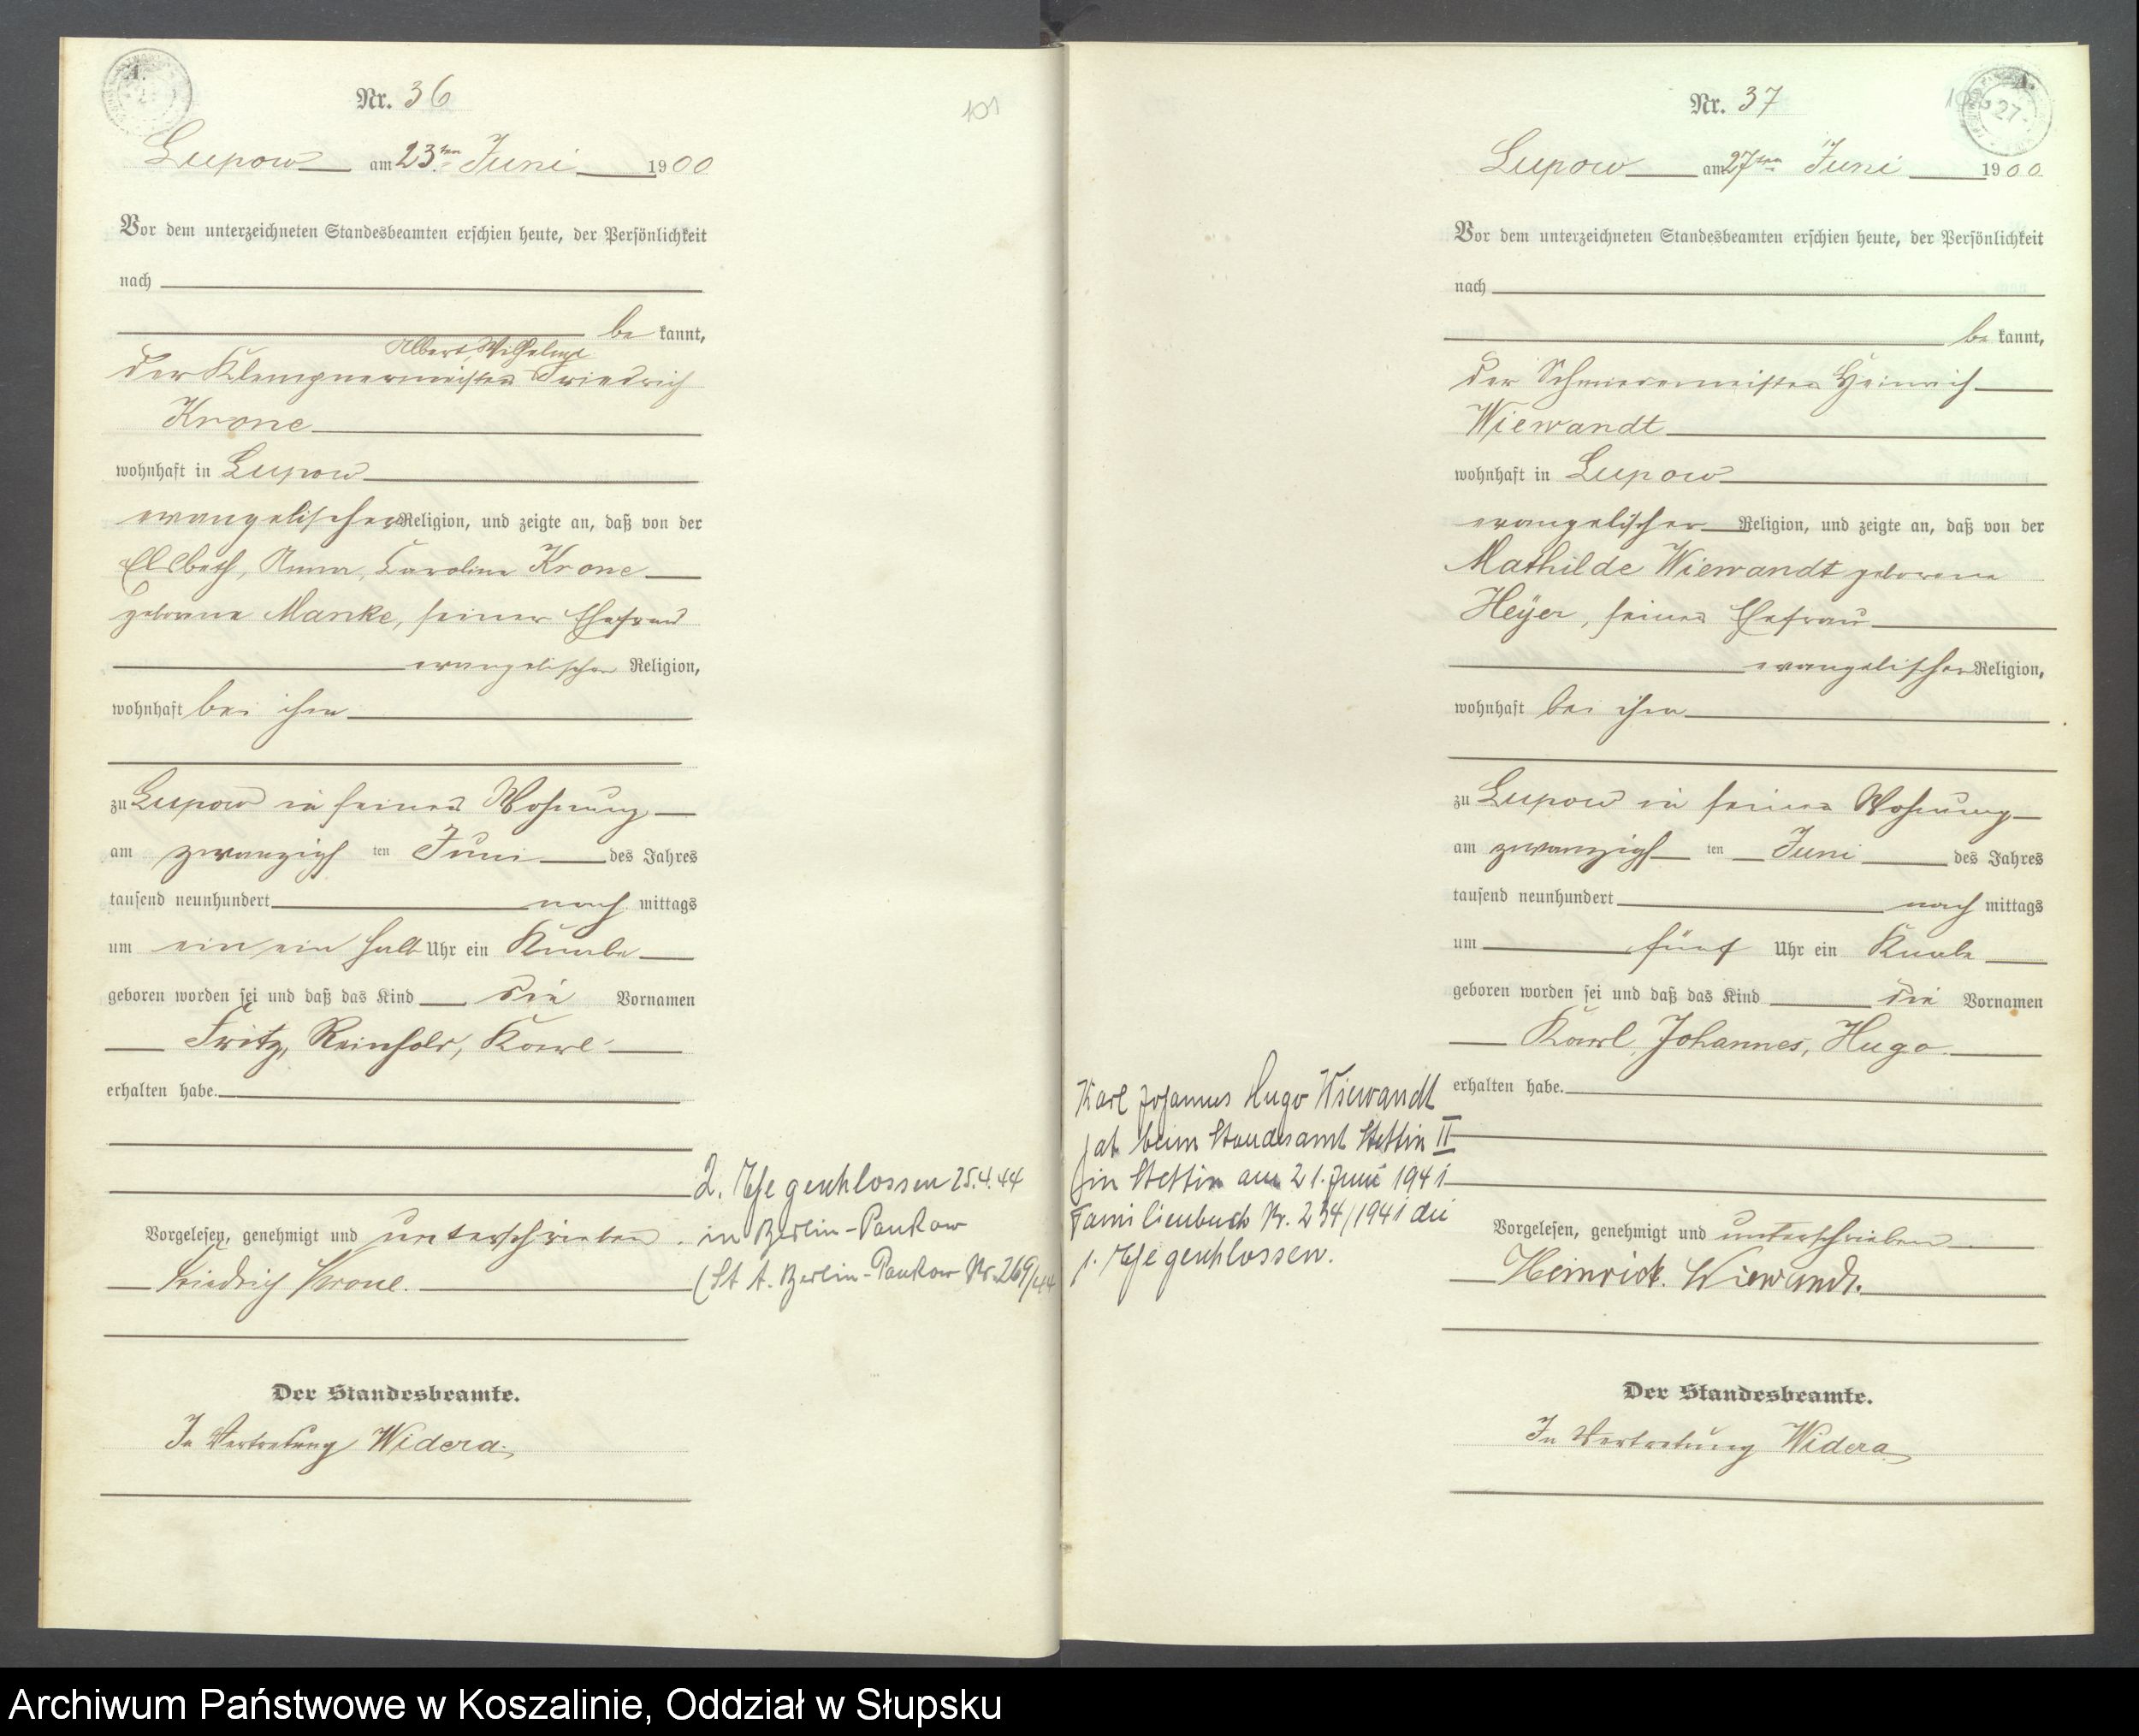 Nr. 36
101
Lupow am 23ten Juni 1900
Vor dem unterzeichneten Standesbeamten erschien heute, der Persönlichkeit
nach
be kannt,
Albert, Wilhelm
der Klempnermeister Friedrich
Krone
wohnhaft in Lupow
evangelischer Religion, und zeigte an, daß von der
Elsbeth, Anna, Karoline Krone
geborene Manke, seiner Ehefrau
evangelischer Religion,
wohnhaft bei ihm
zu Lupow in seiner Wohnung
am zwanzigsten Juni des Jahres
tausend neunhundert nach mittags
um ein ein halb Uhr ein Knabe
geboren worden sei und daß das Kind die Vornamen
Fritz, Reinhold, Karl
erhalten habe.
2. Ehe geschlossen 25.4.44
in Berlin-Pankow
(St A. Berlin-Pankow Nr. 269/44
Vorgelesen, genehmigt und unterschrieben.
Friedrich Krone.
Der Standesbeamte.
In Vertretung Widera.
Nr. 37
27
Lupow am 27ten Juni 1900
Vor dem unterzeichneten Standesbeamten erschien heute, der Persönlichkeit
nach
be kannt,
der Schmiedemeister Heinrich
Wiewandt
wohnhaft in Lupow
evangelischer Religion, und zeigte an, daß von der
Mathilde Wiewandt geborene
Heÿer, seiner Ehefrau
evangelischer Religion,
wohnhaft bei ihm
zu Lupow in seiner Wohnung
am zwanzigsten Juni des Jahres
tausend neunhundert nach mittags
um fünf Uhr ein Knabe
geboren worden sei und daß das Kind die Vornamen
Karl, Johannes, Hugo.
erhalten habe.
Karl Johannes Hugo Wiewandt
hat beim Standesamt Stettin II
in Stettin am 21. Juni 1941
Familienbuch Nr. 234/1941 die
1. Ehe geschlossen.
Vorgelesen, genehmigt und unterschrieben
Heinrich. Wiewandt.
Der Standesbeamte.
In Vertretung Widera
Archiwum Państwowe w Koszalinie, Oddział w Słupsku